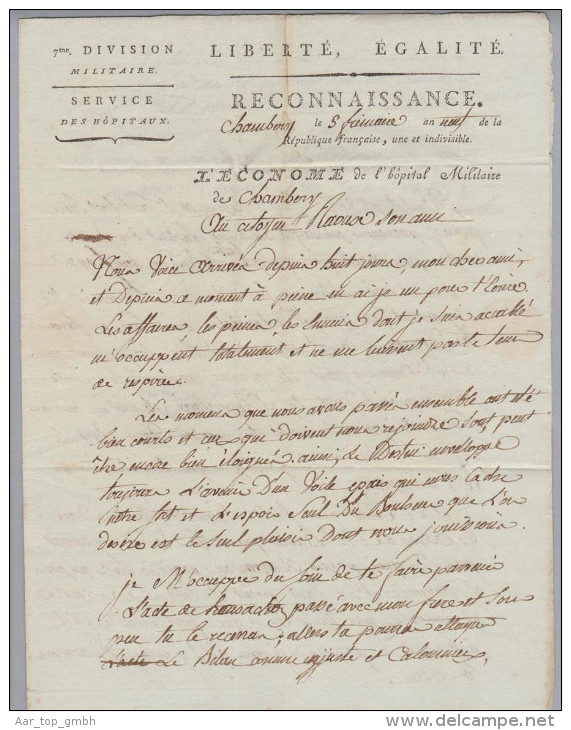 7me. DIVISION
MILITAIRE.
SERVICE
DES HÔPITAUX.
LIBERTÉ, ÉGALITÉ.
RECONNAISSANCE.
Chambery le 5 frimaire an neuf de la
République française, une et indivisible.
L'ECONOME de l'hôpital Militaire
de Chambery
Au citoyen Raoux son ami
Nous Voici arrivés depuis huit jours, mon cher ami,
et Depuis ce moment à peine en ai je un pour t'Ecrire
Les affaires, les peines, les Ennuis dont je suis accablé
m'occuppent totalement et ne me laissent pas le tems
de respirer.
Les momens que nous avons passés ensemble ont été
bien courts et ceux qui doivent nous rejoindre sont peut
être encore bien éloignés. ainsi, Le Destin enveloppe
toujours L'avenir D'un Voile epais qui nous Cache
notre sort et L'espoir seul Du Bonheur que L'on
desire est le seul plaisir dont nous jouissions.
je M'occuppe du soin de te faire parvenir
L'acte de passé avec mon frere et sous
peu tu le recevras; alors tu pourras attaquer
Le Bilan comme injuste et Calomnieux,
Aar_top_gmbh
delcampe.net